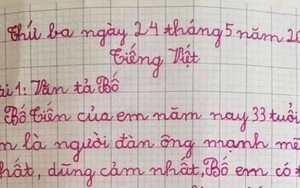 Thứ ba ngày 24 tháng 5 năm 20
Tiếng Việt
ài 1: Văn tả Bố
Bố Tiến của em năm nay 33 tuổi
m là người đàn ông mạnh mẽ
hất, dũng cảm nhất, Bố em có